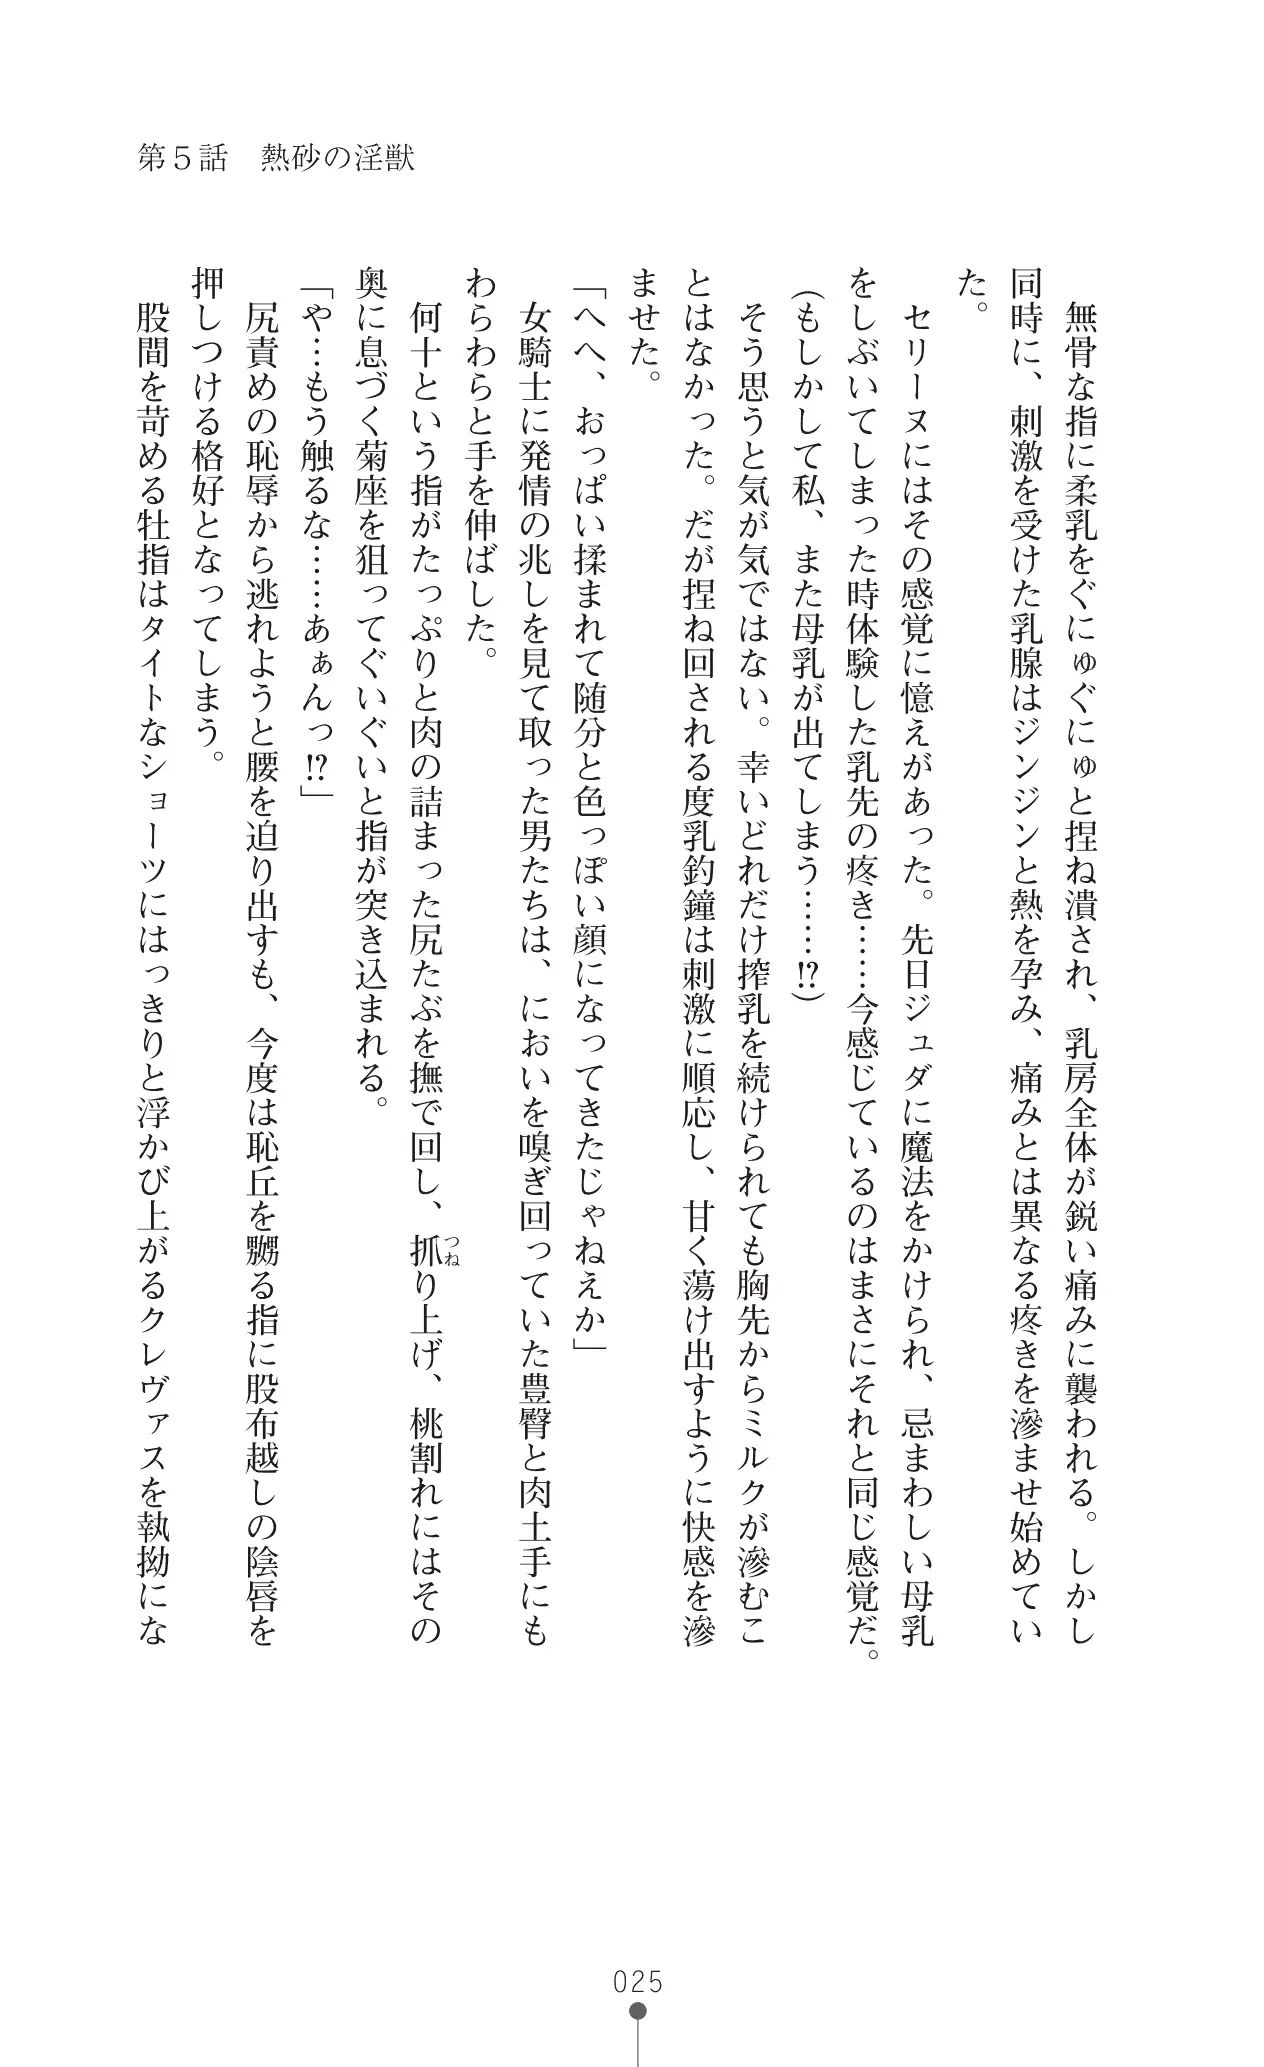 第５話　熱砂の淫獣
　無骨な指に柔乳をぐにゅぐにゅと捏ね潰され、乳房全体が鋭い痛みに襲われる。しかし
同時に、刺激を受けた乳腺はジンジンと熱を孕み、痛みとは異なる疼きを滲ませ始めてい
た。
　セリーヌにはその感覚に憶えがあった。先日ジュダに魔法をかけられ、忌まわしい母乳
をしぶいてしまった時体験した乳先の疼き……今感じているのはまさにそれと同じ感覚だ。
（もしかして私、また母乳が出てしまう……⁉）
　そう思うと気が気ではない。幸いどれだけ搾乳を続けられても胸先からミルクが滲むこ
とはなかった。だが捏ね回される度乳釣鐘は刺激に順応し、甘く蕩け出すように快感を滲
ませた。
「へへ、おっぱい揉まれて随分と色っぽい顔になってきたじゃねえか」
　女騎士に発情の兆しを見て取った男たちは、においを嗅ぎ回っていた豊臀と肉土手にも
わらわらと手を伸ばした。
　何十という指がたっぷりと肉の詰まった尻たぶを撫で回し、抓り上げ、桃割れにはその
つね
奥に息づく菊座を狙ってぐいぐいと指が突き込まれる。
「や…もう触るな……あぁんっ⁉」
　尻責めの恥辱から逃れようと腰を迫り出すも、今度は恥丘を嬲る指に股布越しの陰唇を
押しつける格好となってしまう。
　股間を苛める牡指はタイトなショーツにはっきりと浮かび上がるクレヴァスを執拗にな
025